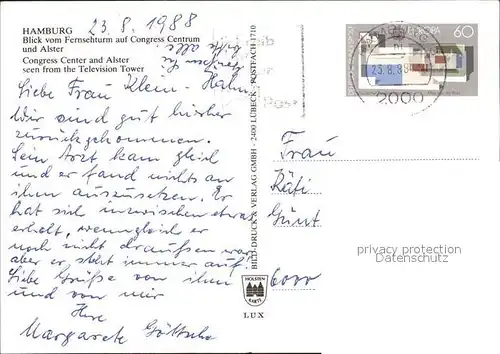 HAMBURG
Blick vom Fernsehturm auf Congress Centrum
und Alster
Congress Center and Alster
seen from the Television Tower
23.8.1988
Liebe Frau Klein-Hahn,
Wir sind gut hierher
zurückgekommen.
Sein Arzt kam gleich
und er fand nichts an
ihm auszusetzen. Er
hat sich inzwischen etwas
erholt, wenngleich er
noch nicht draußen war
aber er steht immer auf.
Liebe Grüße von ihm
und von mir
Ihre
Margarete
BILD-DRUCK & VERLAG GMBH · 2400 LÜBECK · POSTFACH 1710
HOLSTEN
KARTE
LUX
EUROPA
60
23.8.88
2000
Frau
Käti
Günt
6000
privacy protection
www.Ansichtskarten-Center.de